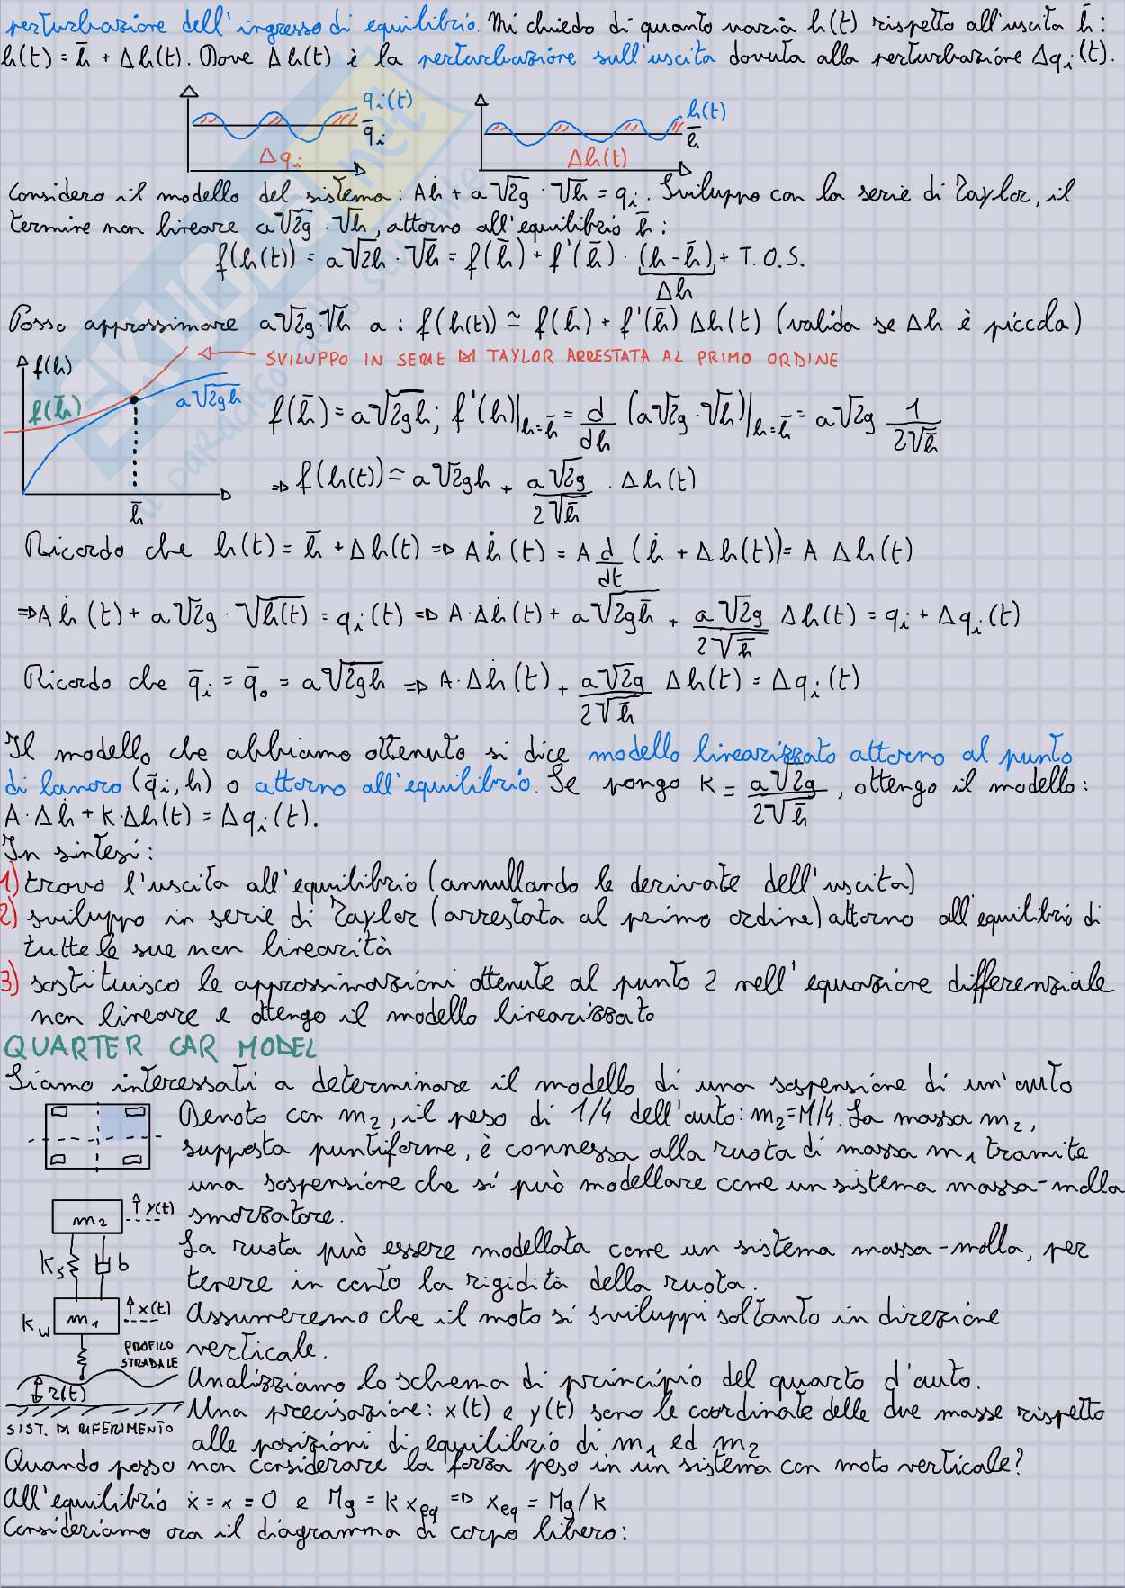 perturbazione dell'ingresso di equilibrio. Mi chiedo di quanto varia h(t) rispetto all'uscita h̄:
h(t) = h̄ + Δh(t). Dove Δh(t) è la perturbazione sull'uscita dovuta alla perturbazione Δqᵢ(t).
qᵢ(t)
q̄ᵢ
Δqᵢ
h(t)
h̄
Δh(t)
Considero il modello del sistema: Aḣ + a√2g · √h = qᵢ. Sviluppo con la serie di Taylor, il
termine non lineare a√2g · √h, attorno all'equilibrio h̄:
f(h(t)) = a√2h · √h = f(h̄) + f'(h̄) · (h-h̄) + T.O.S.
Δh
Posso approssimare a√2g √h a: f(h(t)) ≃ f(h̄) + f'(h̄) Δh(t) (valida se Δh è piccola)
f(h)
SVILUPPO IN SERIE DI TAYLOR ARRESTATA AL PRIMO ORDINE
f(h̄)
a√2gh
h̄
f(h̄) = a√2gh; f'(h)|h=h̄ = d/dh (a√2g · √h)|h=h̄ = a√2g 1/2√h̄
⇒ f(h(t)) ≃ a√2gh + a√2g/2√h̄ · Δh(t)
Ricordo che h(t) = h̄ + Δh(t) ⇒ Aḣ(t) = A d/dt (h + Δh(t)) = A Δh(t)
⇒ Aḣ(t) + a√2g · √h(t) = qᵢ(t) ⇒ A·Δḣ(t) + a√2gh̄ + a√2g/2√h̄ Δh(t) = qᵢ + Δqᵢ(t)
Ricordo che q̄ᵢ = q̄ₒ = a√2gh ⇒ A·Δḣ(t) + a√2g/2√h̄ Δh(t) = Δqᵢ(t)
Il modello che abbiamo ottenuto si dice modello linearizzato attorno al punto
di lavoro (q̄ᵢ, h) o attorno all'equilibrio. Se pongo K = a√2g/2√h̄, ottengo il modello:
A·Δḣ + K·Δh(t) = Δqᵢ(t).
In sintesi:
1) trovo l'uscita all'equilibrio (annullando le derivate dell'uscita)
2) sviluppo in serie di Taylor (arrestata al primo ordine) attorno all'equilibrio di
tutte le sue non linearità
3) sostituisco le approssimazioni ottenute al punto 2 nell'equazione differenziale
non lineare e ottengo il modello linearizzato
QUARTER CAR MODEL
Siamo interessati a determinare il modello di una sospensione di un'auto
Denoto con m₂, il peso di 1/4 dell'auto: m₂=M/4. La massa m₂,
supposta puntiforme, è connessa alla ruota di massa m₁ tramite
una sospensione che si può modellare come un sistema massa-molla
smorzatore.
m₂
y(t)
Kₛ
b
La ruota può essere modellata come un sistema massa-molla, per
tenere in conto la rigidità della ruota.
m₁
x(t)
K_w
Assumeremo che il moto si sviluppi soltanto in direzione
verticale.
PROFILO
STRADALE
r(t)
SIST. DI RIFERIMENTO
Analizziamo lo schema di principio del quarto d'auto.
Una precisazione: x(t) e y(t) sono le coordinate delle due masse rispetto
alle posizioni di equilibrio di m₁ ed m₂
Quando posso non considerare la forza peso in un sistema con moto verticale?
All'equilibrio ẋ = x = 0 e Mg = K x_eq ⇒ x_eq = Mg/K
Consideriamo ora il diagramma di corpo libero: